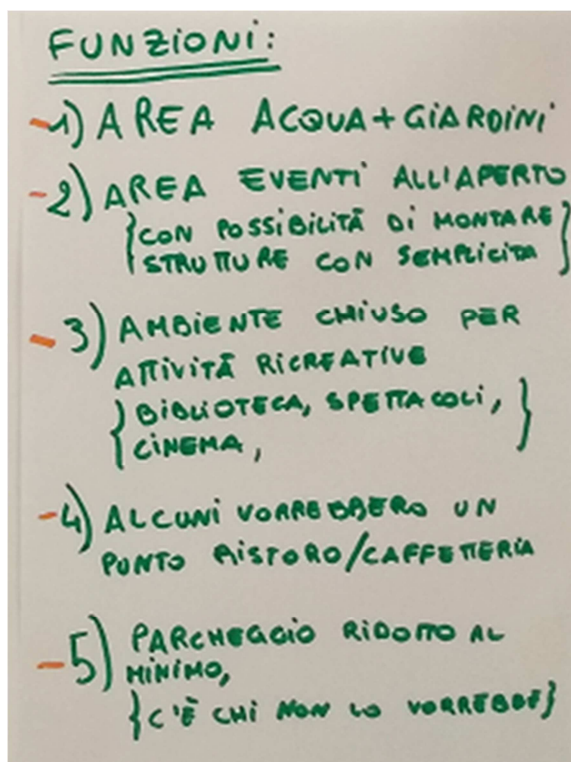 FUNZIONI:
-1) AREA ACQUA+GIARDINI
-2) AREA EVENTI ALL'APERTO
{CON POSSIBILITÀ DI MONTARE
STRUTTURE CON SEMPLICITÀ}
-3) AMBIENTE CHIUSO PER
ATTIVITÀ RICREATIVE
{BIBLIOTECA, SPETTACOLI,
CINEMA, }
-4) ALCUNI VORREBBERO UN
PUNTO RISTORO/CAFFETTERIA
-5) PARCHEGGIO RIDOTTO AL
MINIMO,
{C'È CHI NON LO VORREBBE}